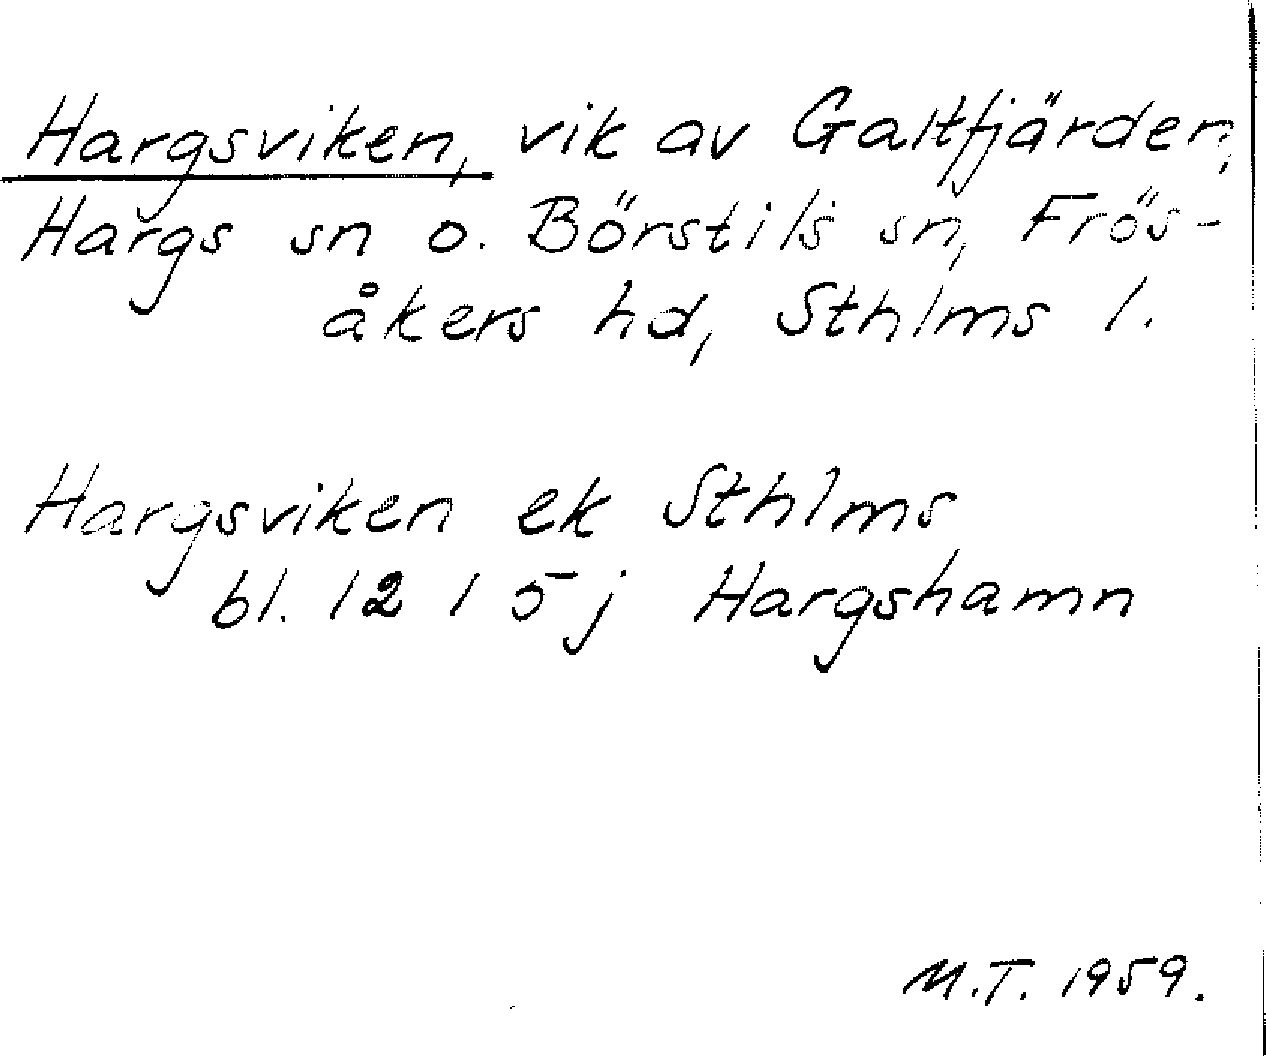 Hargsviken, vik av Galtfjärden,
Hargs sn o. Börstils sn, Frös-
åkers hd, Sthlms l.
Hargsviken ek Sthlms
bl. 12 I 5j Hargshamn
M.T. 1959.